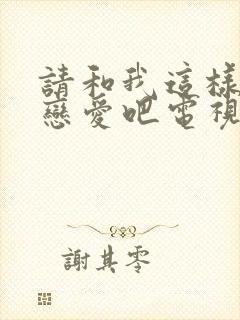 請和我這樣
戀愛吧電視
謝其零